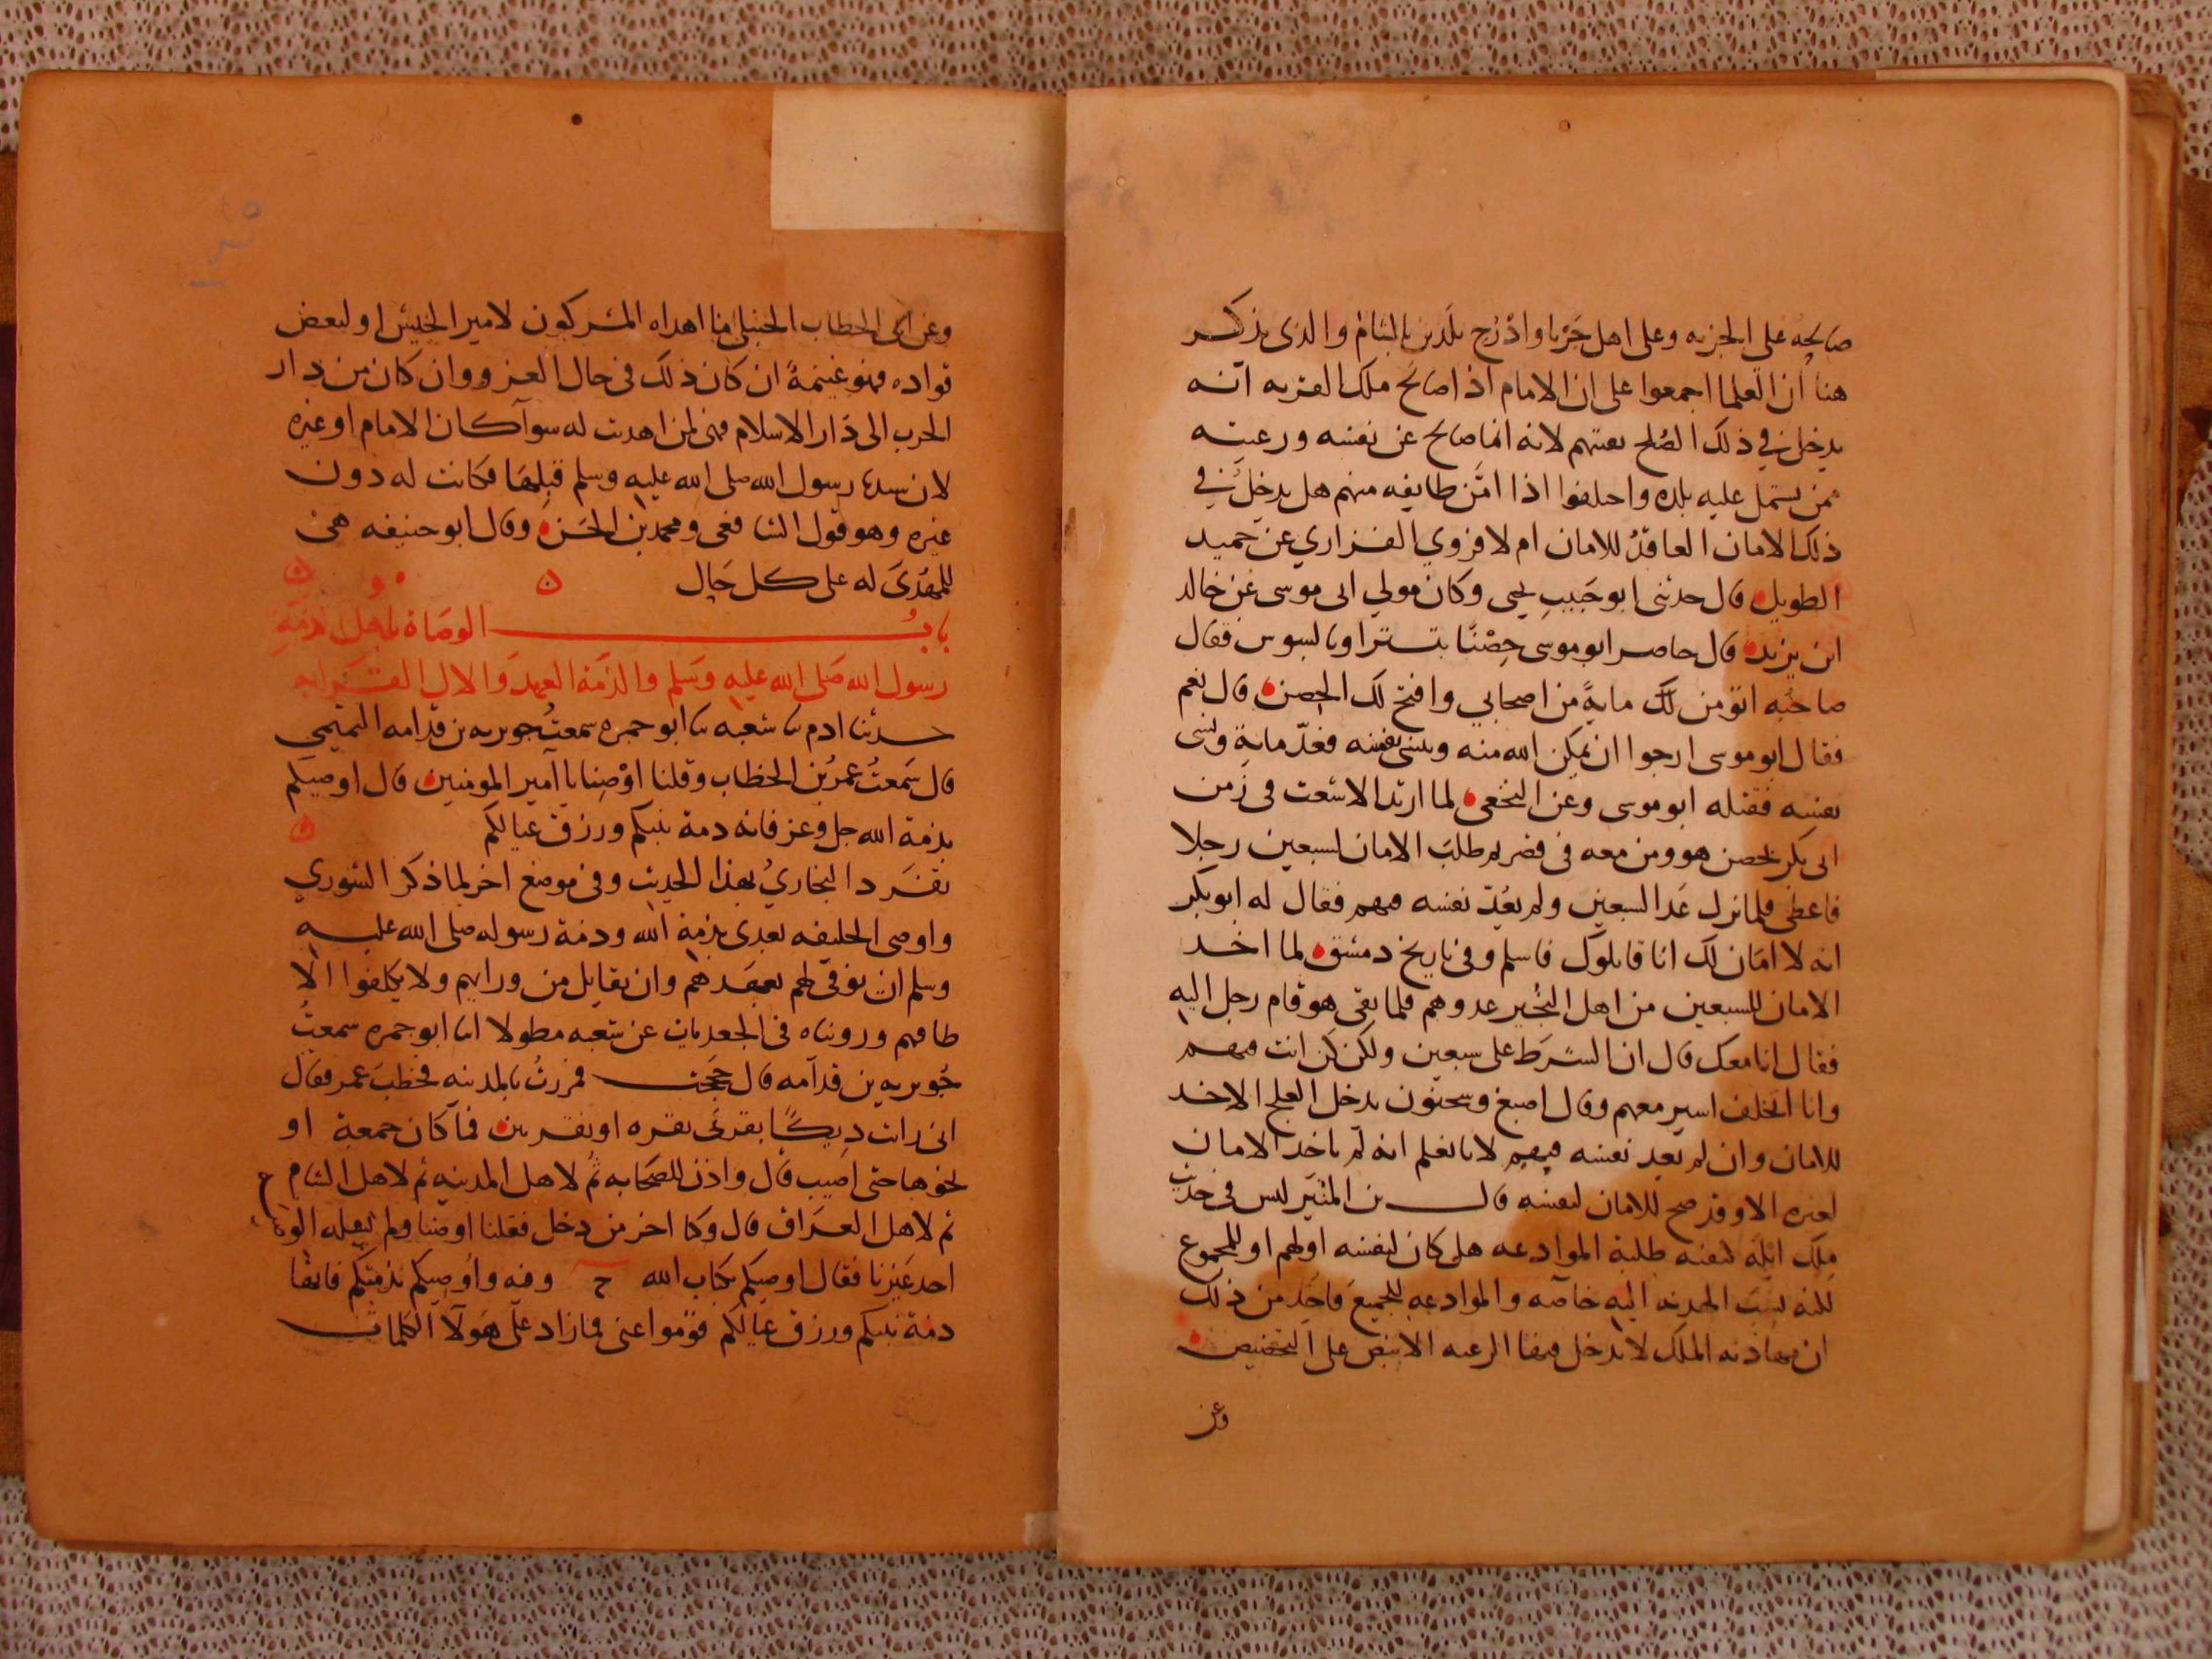 صالحه على الجزيه وعلى اهل جَرْبا واذْرُح بلدين بالشام والذى يذكر
هنا ان العلما اجمعوا على ان الامام اذا صالح ملك القريه انه
يدخل في ذلك الصُلح بقيتهم لانه انما صالح عن نفسه ورعيته
ممن يشتمل عليه بلده واختلفوا اذا امّن طايفه منهم هل يدخل في
ذلك الامان العاقدُ للامان ام لا فروي الفزاري عن حميد
الطويل قال حدثنى ابو حَبيبٍ يحيى وكان مولي ابى موسى عن خالد
ابن يزيد قال حاصر ابو موسى حِصْنًا بتستر او بالسوس فقال
صاحبُه اتؤمن لك مايةً من اصحابي وافتح لك الحصن قال نعم
فقال ابو موسى ارجوا ان يمكن الله منه وينسى نفسه فعدّ ماية ونسى
نفسه فقتله ابو موسى وعن النخعى لما ارتد الاشعث فى زمن
ابى بكر تحصن هو ومن معه فى قصر ثم طلبَ الامان لسبعين رجلا
فاعطى فلما نزل عَد السبعين ولم يَعُدّ نفسه فيهم فقال له ابو بكر
انه لا امَان لك انا قاتلوك فاسلم وفى تاريخ دمشق لما اخد
الامان للسبعين من اهل النُجير عدوهم فلما بقى هو قام رجل اليه
فقال انا معك قال ان الشرَط على سبعين ولكن كن انت فيهم
وانا اتخلف اسير معهم وقال اصبغ وسحنون يدخل العلج الاخد
للامان وان لم يَعد نفسه فيهم لانا نعلم انه لم ياخد الامان
لغيره الا وقد صح للامان لنفسه قال بن المنَيّر ليس فى حديث
ملك ايلَه كيفيه طلبه الموادعه هل كان لنفسه او لهم او للمجموع
لكنه نسبَ الهديه اليه خاصه والموادعه للجميعَ فاخِذ من ذلك
ان مهادنه الملك لا يدخل فيها الرعيه الا بنص على التخصيص
وعن
وعن ابى الخطاب الحنبلى ما اهداه المشركون لامير الجيش او لبعض
قواده فهو غنيمةً ان كان ذلك فى حال الغزو وان كان من دار
الحرب الى دَار الاسلام فهى لمن اهديت له سوآ كان الامام او غيره
لان سيدنا رسول الله صلى الله عليه وسلم قبِلهَا فكانت له دون
غيره وهو قول الشافعى ومحمد بن الحَسن وقال ابو حنيفه هى
للمهْدَى له على كل حَال ه
بابُ الوصَاة باهل ذمّةِ
رسول الله صَلى الله عليه وسَلم والذمَة العهدَ والال القَرابه
حدثنا ادم نا شعبه نا ابو جمره سمعتُ جويريه بن قدامه التميمى
قال سَمعتُ عمرُ بن الخطاب وقلنا اوْصِنا يا امير المومنين قال اوصيكم
بذمة الله جل وعز فانه دمة نبيكم ورزق عيالكم ه
تفرَد البخاريُ بهذا الحديث وفى موضع اخر لما ذكر الشوري
واوصى الخليفه بعدى بذمة الله ودمة رسوله صلى الله عليه
وسلم ان يوفى لهم بعهدهم وان يقاتل من ورايهم ولا يكلفوا الا
طاقتهم ورويناه فى الجعديات عن شعبه مطولا انا ابو جمره سمعتُ
جُويريه بن قدآمه قال حججت فمررتُ بالمدينه فخطبَ عمر فقال
انى رايت دِيكًا نقرنى نقره او نقرتين فمآ كان جمعة او
نحوها حتى اصيب قال واذن للصَحَابه ثُم لاهل المدينه ثم لاهل الشام
ثم لاهل العرَاق قال وكنا اخر من دخل فقلنا اوصنا ولم يَسله الوصاه
احد غيَرنا فقال اوصيكم بكتاب الله ح وفيه واُوصيكم بذمتكم فانها
دمَة نبيكم ورزق عيالكم قوموا عنى فما زاد على هَولآ الكلمات